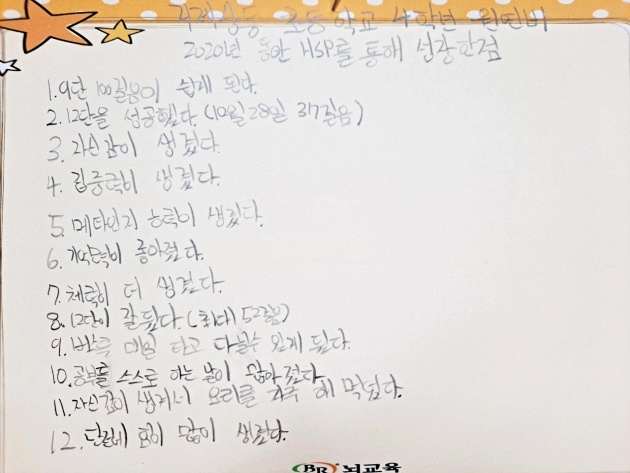 초등학교 4학년 원연비
2020년 동안 HSP를 통해 성장한점
1. 9단 100걸음이 쉽게 된다.
2. 12단을 성공했다. (10월 28일 37걸음)
3. 자신감이 생겼다.
4. 집중력이 생겼다.
5. 메타인지 능력이 생겼다.
6. 기억력이 좋아졌다.
7. 체력이 더 생겼다.
8. 12단이 잘 됐다. (최대 52걸음)
9. 버스를 매일 타고 다닐수 있게 됬다.
10. 공부를 스스로 하는 날이 많아졌다.
11. 자신감이 생기니 요리를 자주 해 먹었다.
12. 단전에 힘이 많이 생겼다.
BR 뇌교육